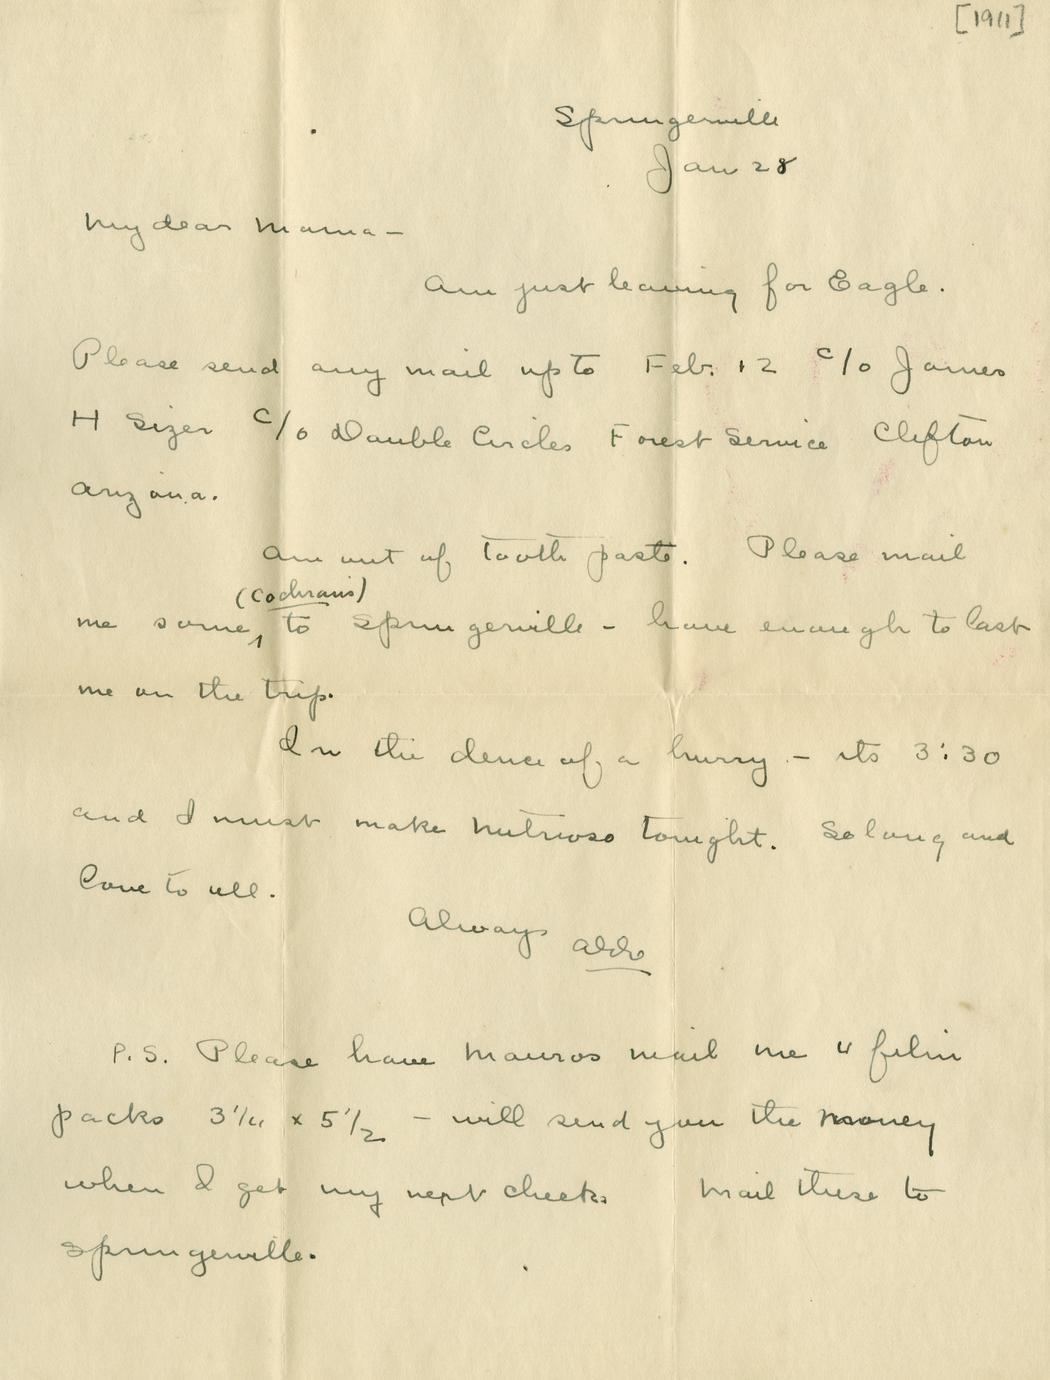 [1911]
Springerville
Jan 28
My dear Mama -
Am just leaving for Eagle.
Please send any mail up to Feb. 12 c/o James
H Sizer c/o Double Circles Forest Service Clifton
Arizona.
Am out of tooth paste. Please mail
(Cochrans)
me some to Springerville - have enough to last
me on the trip.
In the dence of a hurry - its 3:30
and I must make Nutrioso tonight. So long and
love to all.
Always Aldo
P.S. Please have Mauros mail me 4 film
packs 3 1/4 x 5 1/2 - will send you the money
when I get my next checks Mail these to
Springerville.